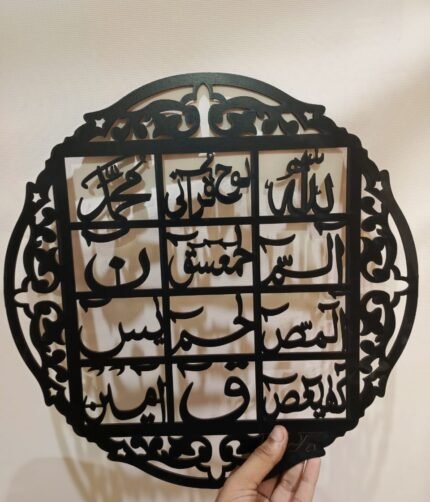 الله لوح قرآنی محمد
الم حمعسق ن
المص حم یس
کھیعص ق آمین